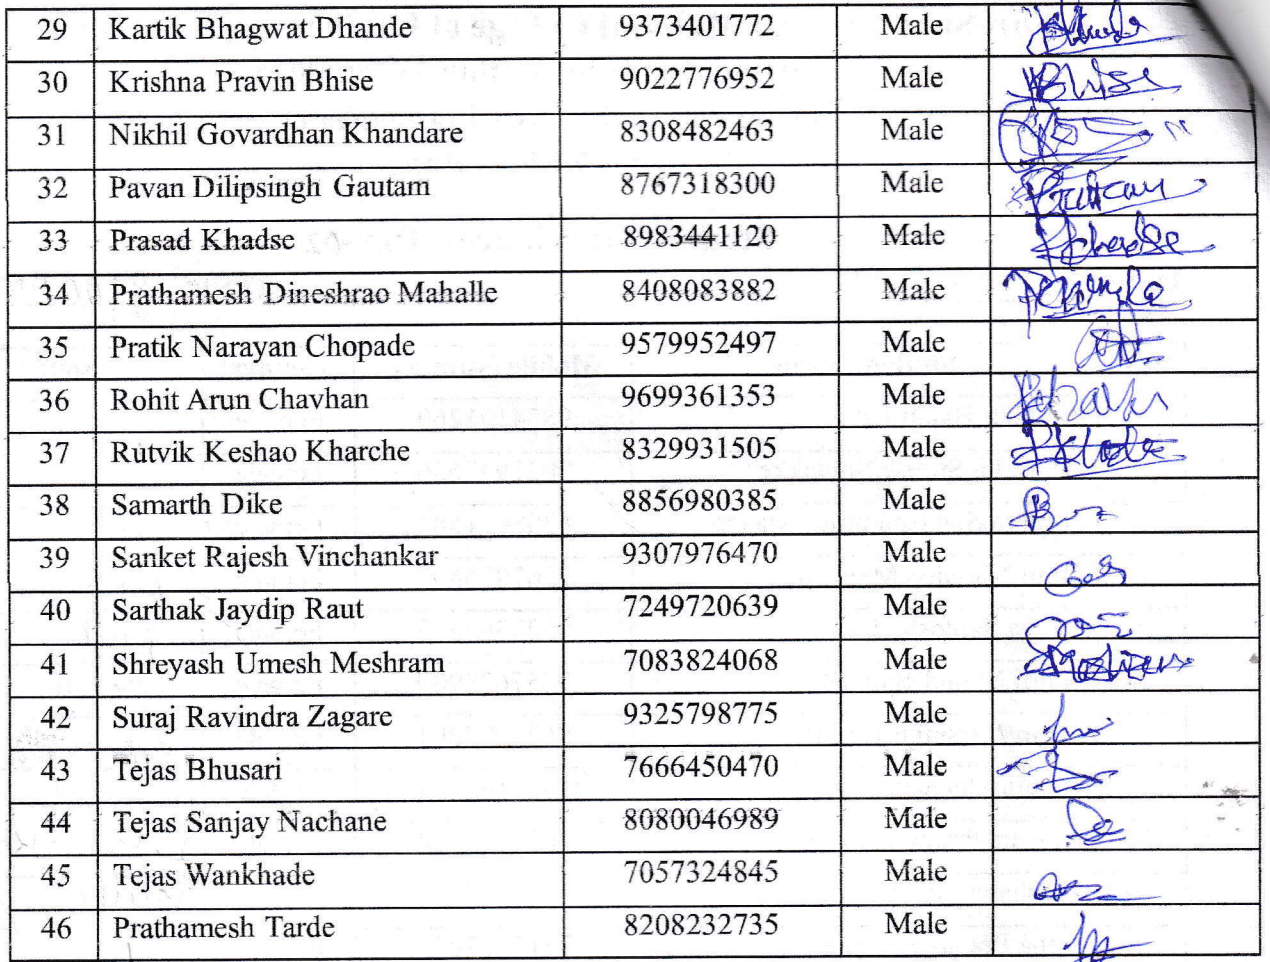 29 Kartik Bhagwat Dhande 9373401772 Male
30 Krishna Pravin Bhise 9022776952 Male Bhise
31 Nikhil Govardhan Khandare 8308482463 Male
32 Pavan Dilipsingh Gautam 8767318300 Male
33 Prasad Khadse 8983441120 Male
34 Prathamesh Dineshrao Mahalle 8408083882 Male
35 Pratik Narayan Chopade 9579952497 Male
36 Rohit Arun Chavhan 9699361353 Male
37 Rutvik Keshao Kharche 8329931505 Male
38 Samarth Dike 8856980385 Male
39 Sanket Rajesh Vinchankar 9307976470 Male
40 Sarthak Jaydip Raut 7249720639 Male
41 Shreyash Umesh Meshram 7083824068 Male
42 Suraj Ravindra Zagare 9325798775 Male
43 Tejas Bhusari 7666450470 Male
44 Tejas Sanjay Nachane 8080046989 Male
45 Tejas Wankhade 7057324845 Male
46 Prathamesh Tarde 8208232735 Male